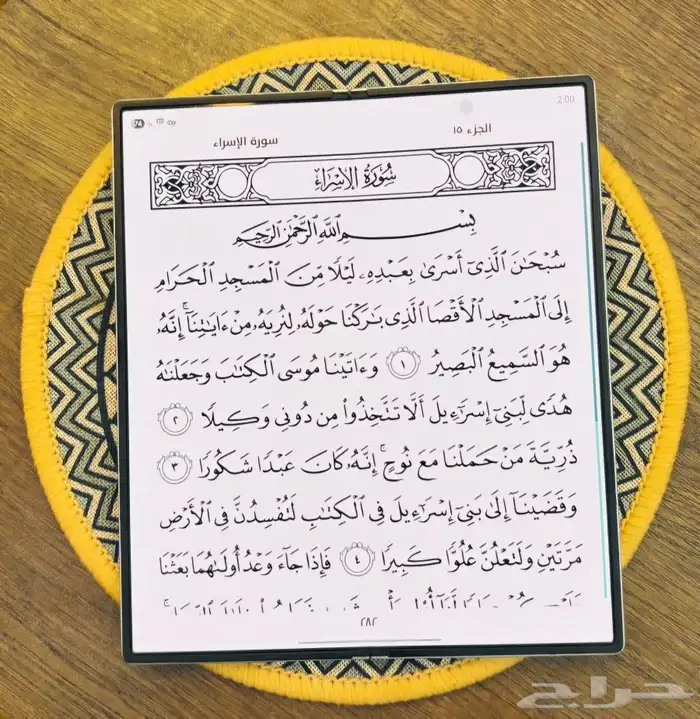 2:00
74
الجزء ١٥
سورة الإسراء
سُورَةُ الإِسۡرَاءِ
بِسۡمِ ٱللَّهِ ٱلرَّحۡمَٰنِ ٱلرَّحِيمِ
سُبۡحَٰنَ ٱلَّذِيٓ أَسۡرَىٰ بِعَبۡدِهِۦ لَيۡلٗا مِّنَ ٱلۡمَسۡجِدِ ٱلۡحَرَامِ
إِلَى ٱلۡمَسۡجِدِ ٱلۡأَقۡصَا ٱلَّذِي بَٰرَكۡنَا حَوۡلَهُۥ لِنُرِيَهُۥ مِنۡ ءَايَٰتِنَآۚ إِنَّهُۥ
هُوَ ٱلسَّمِيعُ ٱلۡبَصِيرُ ١ وَءَاتَيۡنَا مُوسَى ٱلۡكِتَٰبَ وَجَعَلۡنَٰهُ
هُدٗى لِّبَنِيٓ إِسۡرَٰٓءِيلَ أَلَّا تَتَّخِذُواْ مِن دُونِي وَكِيلٗا ٢
ذُرِّيَّةَ مَنۡ حَمَلۡنَا مَعَ نُوحٍۚ إِنَّهُۥ كَانَ عَبۡدٗا شَكُورٗا ٣
وَقَضَيۡنَآ إِلَىٰ بَنِيٓ إِسۡرَٰٓءِيلَ فِي ٱلۡكِتَٰبِ لَتُفۡسِدُنَّ فِي ٱلۡأَرۡضِ
مَرَّتَيۡنِ وَلَتَعۡلُنَّ عُلُوّٗا كَبِيرٗا ٤ فَإِذَا جَآءَ وَعۡدُ أُولَىٰهُمَا بَعَثۡنَا
٢٨٢
حراج